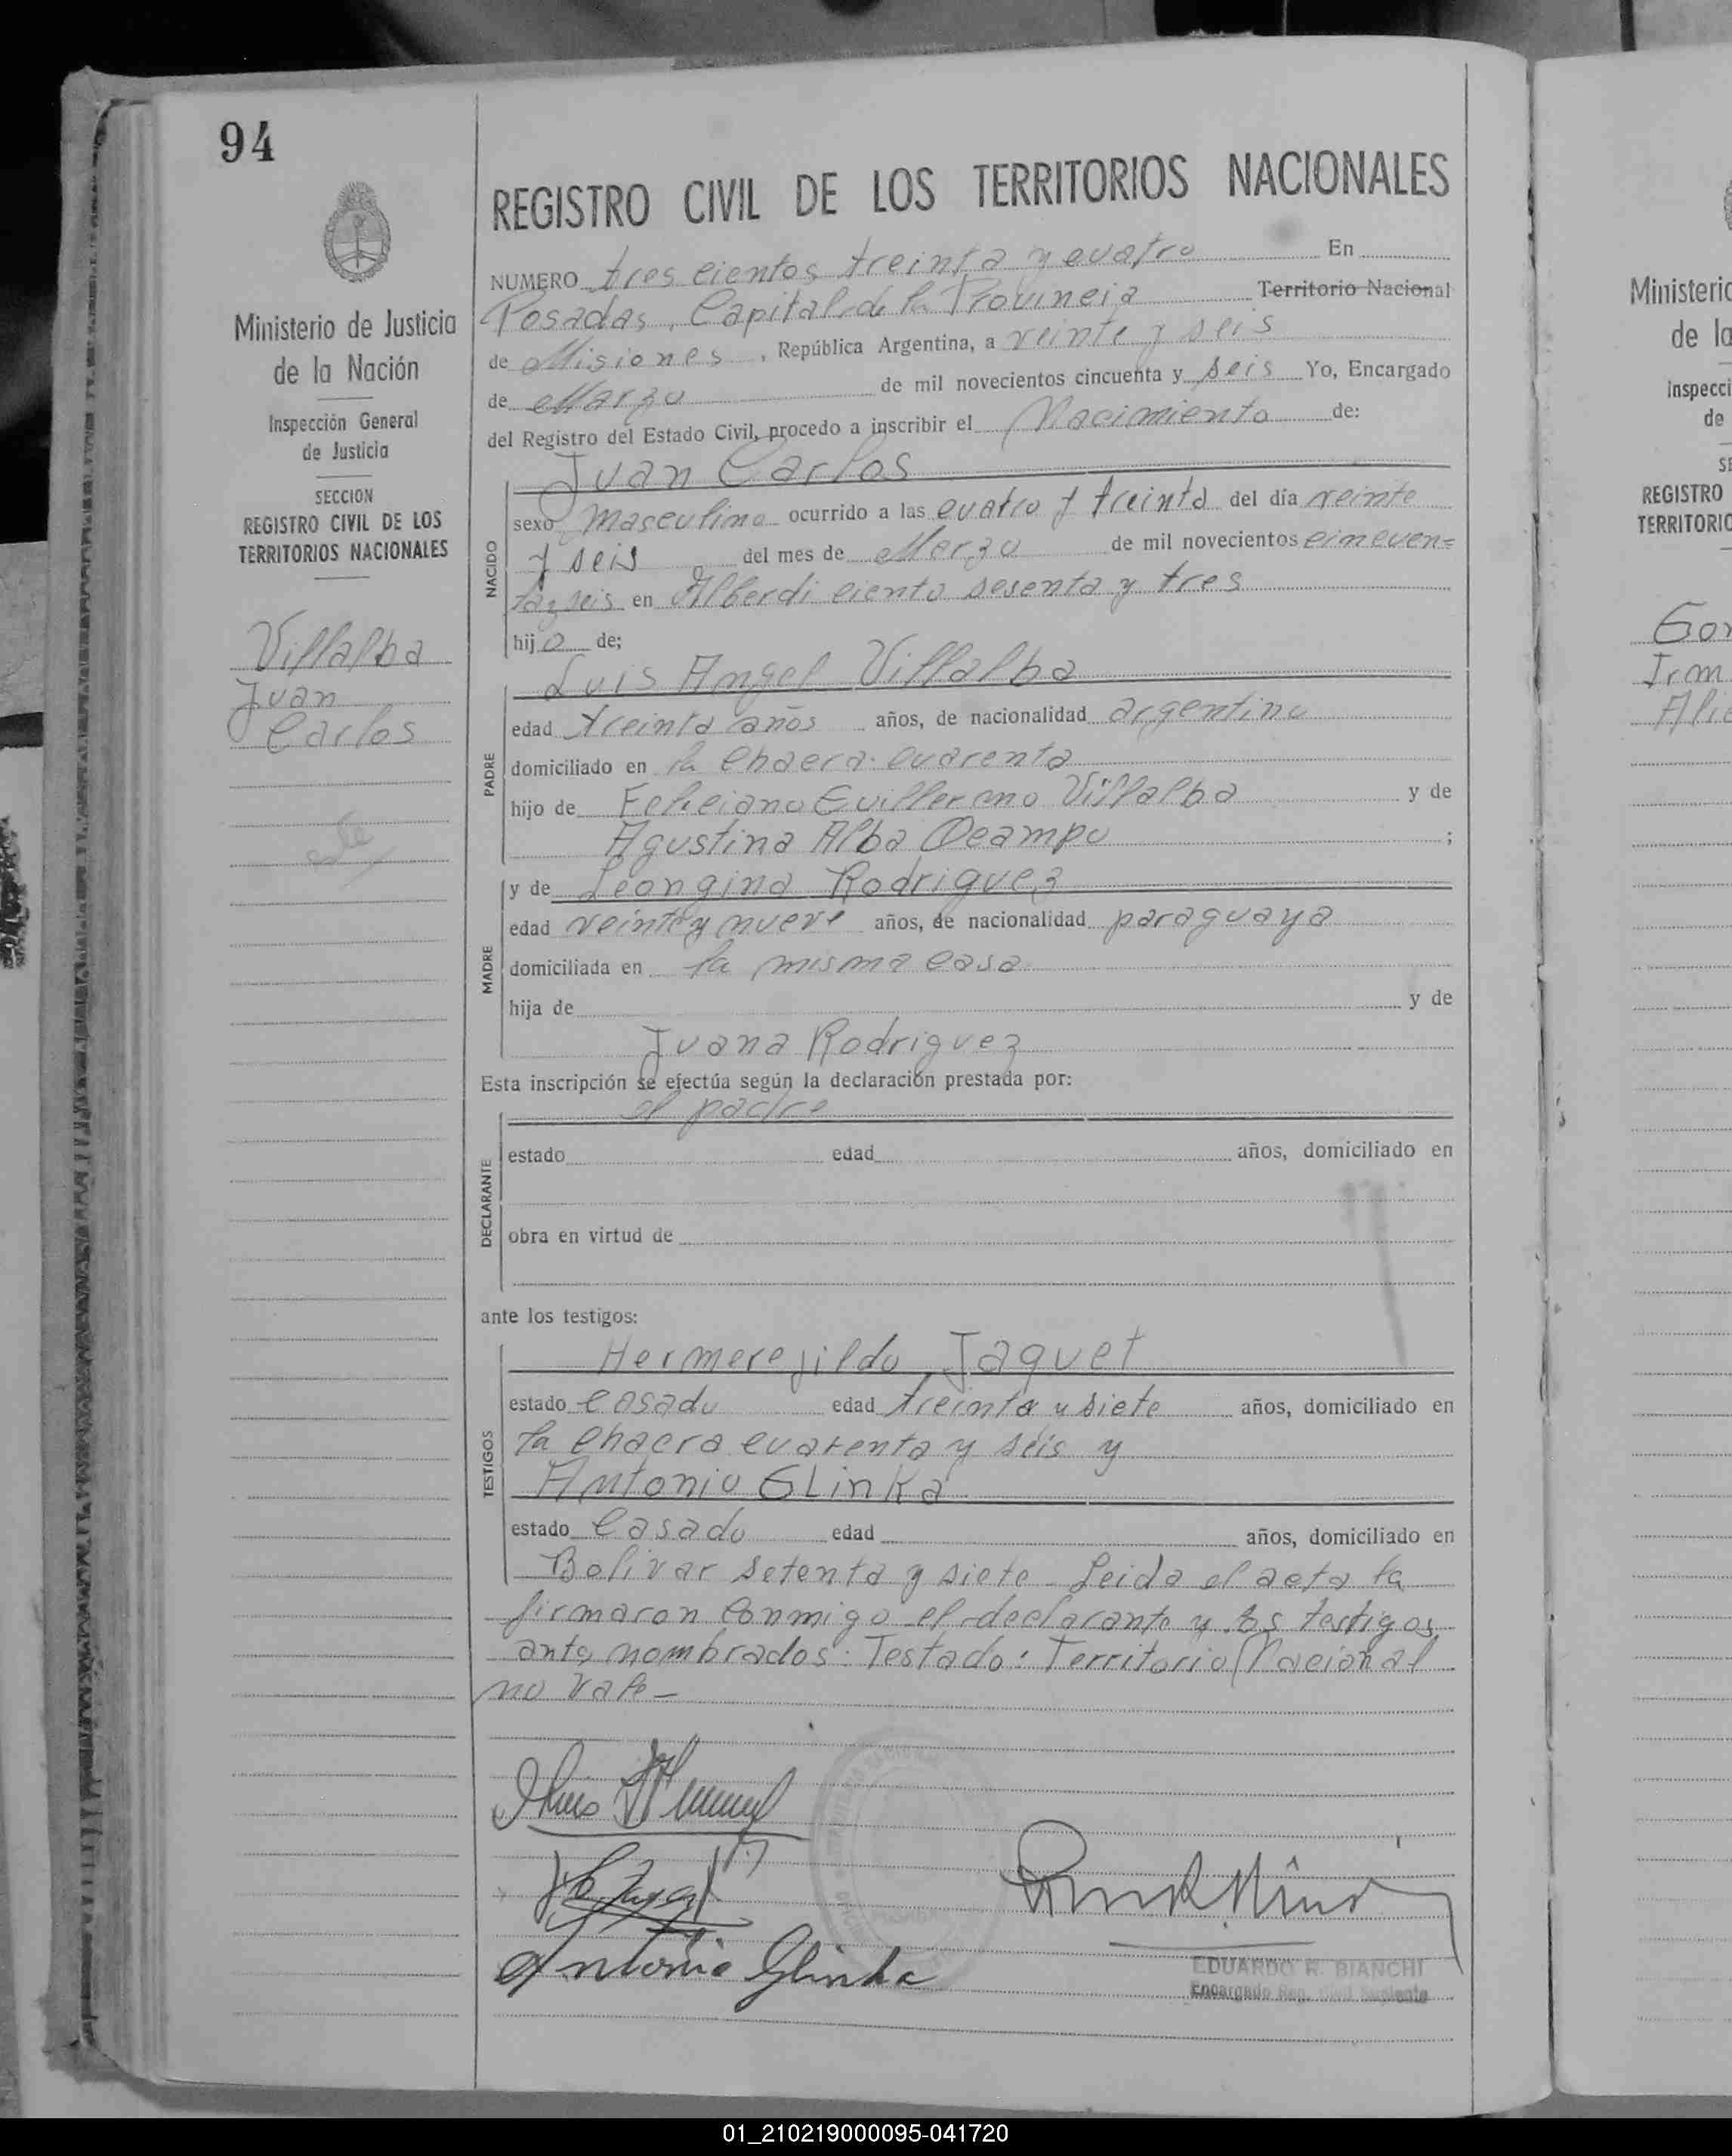 94
Ministerio de Justicia
de la Nación
Inspección General
de Justicia
SECCION
REGISTRO CIVIL DE LOS
TERRITORIOS NACIONALES
Villalba
Juan
Carlos
REGISTRO CIVIL DE LOS TERRITORIOS NACIONALES
NUMERO tres cientos treinta y cuatro En
Posadas, Capital de la Provincia Territorio Nacional
de Misiones, República Argentina, a veinte y seis
de Marzo de mil novecientos cincuenta y seis Yo, Encargado
del Registro del Estado Civil, procedo a inscribir el Nacimiento de:
Juan Carlos
NACIDO
sexo masculino ocurrido a las cuatro y treinta del día veinte
y seis del mes de Marzo de mil novecientos cincuen=
ta y seis en Alberdi ciento sesenta y tres
hijo de;
PADRE
Luis Angel Villalba
edad treinta años años, de nacionalidad argentino
domiciliado en la chacra cuarenta
hijo de Feliciano Guillermo Villalba y de
Agustina Alba Ocampo ;
MADRE
y de Leongina Rodriguez
edad veinte y nueve años, de nacionalidad paraguaya
domiciliada en la misma casa
hija de y de
Juana Rodriguez
Esta inscripción se efectúa según la declaración prestada por:
DECLARANTE
el padre
estado edad años, domiciliado en
obra en virtud de
ante los testigos:
TESTIGOS
Hermerejildo Jaquet
estado casado edad treinta y siete años, domiciliado en
la chacra cuarenta y seis y
Antonio Glinka
estado casado edad años, domiciliado en
Bolivar setenta y siete - Leida el acta la
firmaron conmigo el declarante y los testigos
ante nombrados. Testado: Territorio Nacional
no vale -
Luis
Antonio Glinka
EDUARDO R. BIANCHI
Encargado Reg. Civil Suplente
Ministerio
de la
Inspecci
de
SE
REGISTRO
TERRITORIO
Gon
Irm
Alic
01_210219000095-041720